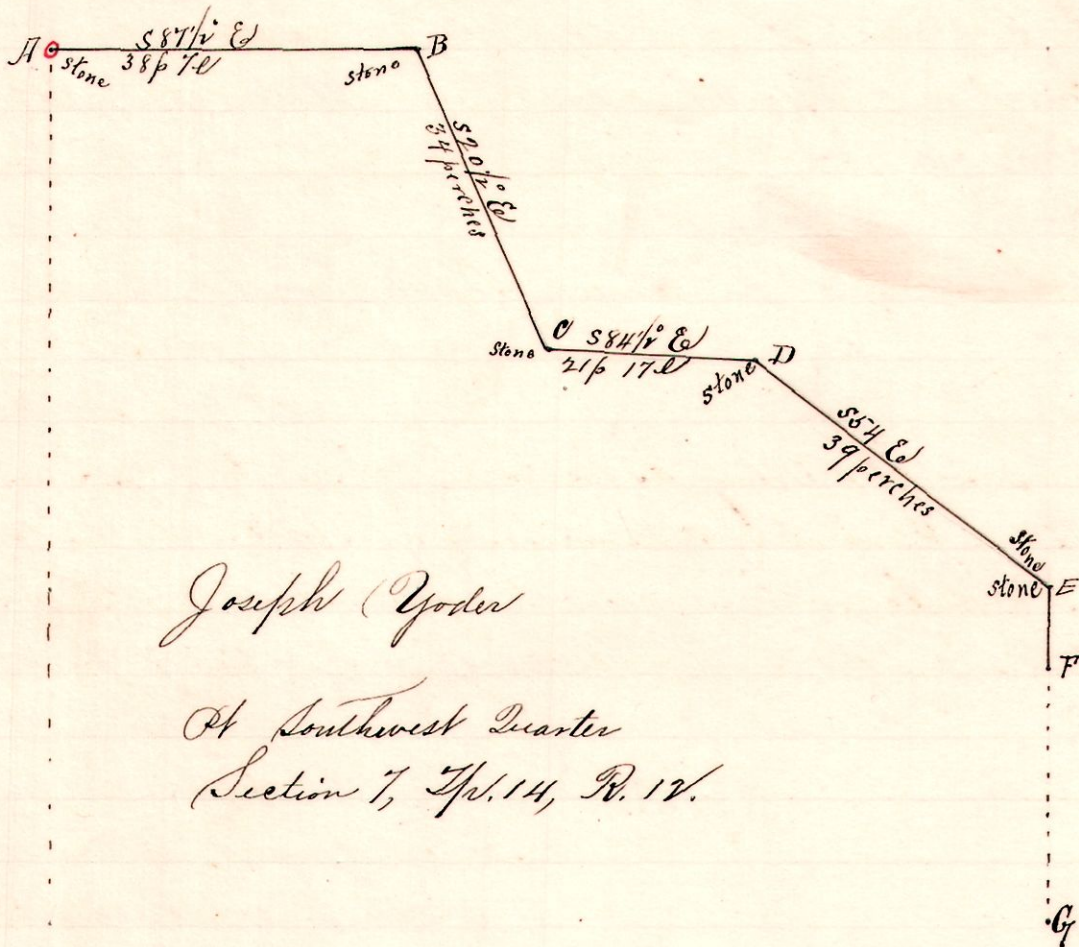 A
S 87 1/2° E
38p 7l
stone
stone
B
S 20 1/2° E
34 perches
stone
C
S 84 1/2° E
21p 17l
stone
D
S 54 E
39 perches
stone
stone
E
F
G
Joseph Yoder
Pt Southwest Quarter
Section 7, Tp. 14, R. 12.